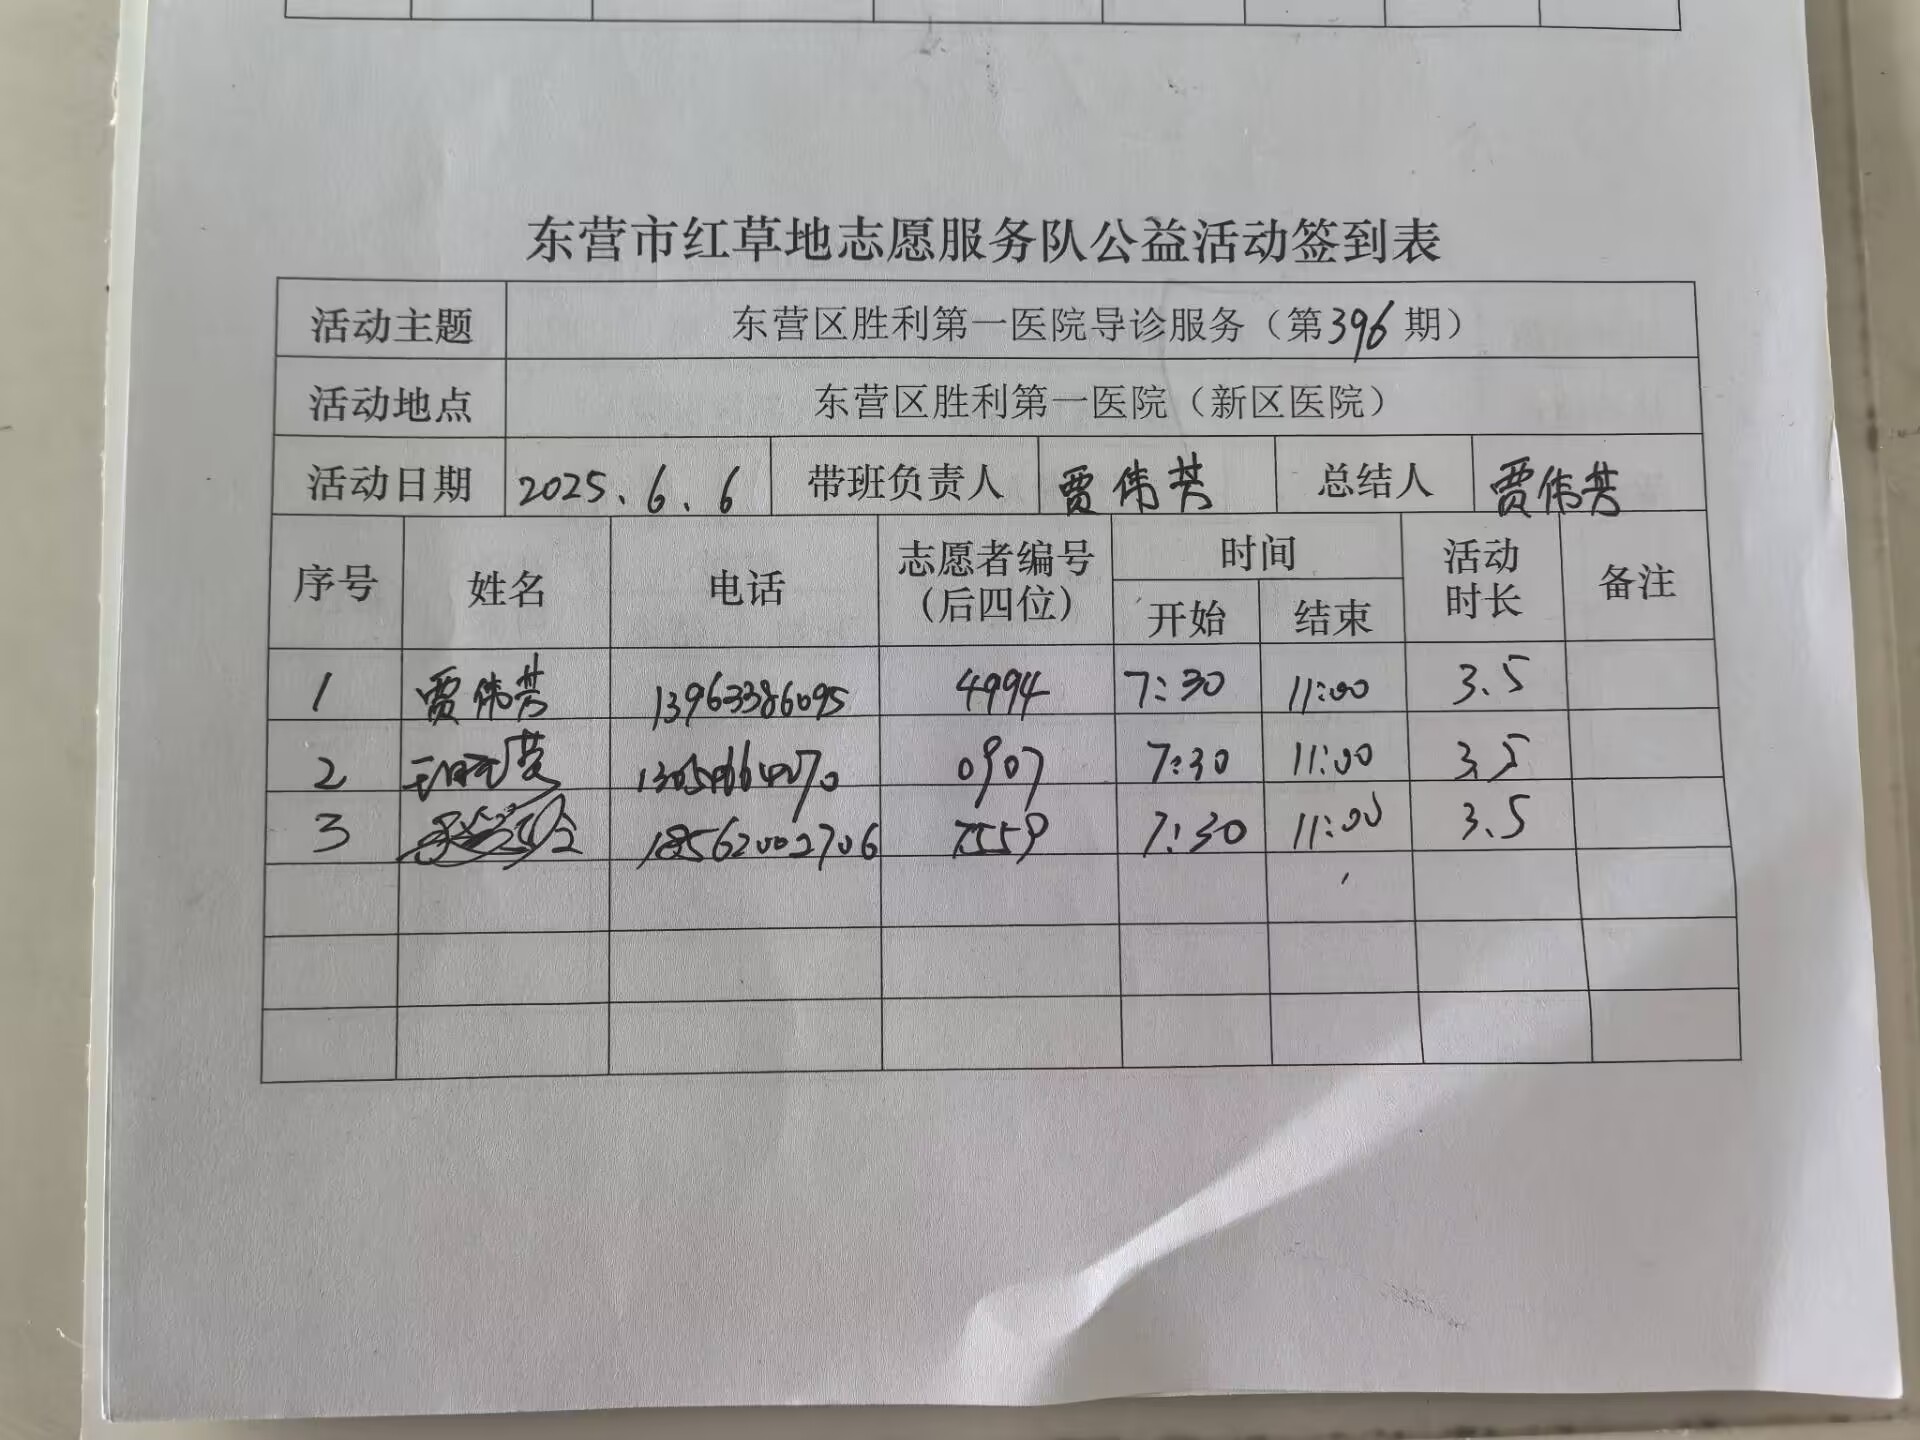 东营市红草地志愿服务队公益活动签到表
活动主题 东营区胜利第一医院导诊服务（第396期）
活动地点 东营区胜利第一医院（新区医院）
活动日期 2025.6.6 带班负责人 贾伟芳 总结人 贾伟芳
序号 姓名 电话 志愿者编号（后四位） 时间 开始 结束 活动时长 备注
1 贾伟芳 13963386095 4994 7:30 11:00 3.5
2 0907 7:30 11:00 3.5
3 18562002706 7559 7:30 11:00 3.5